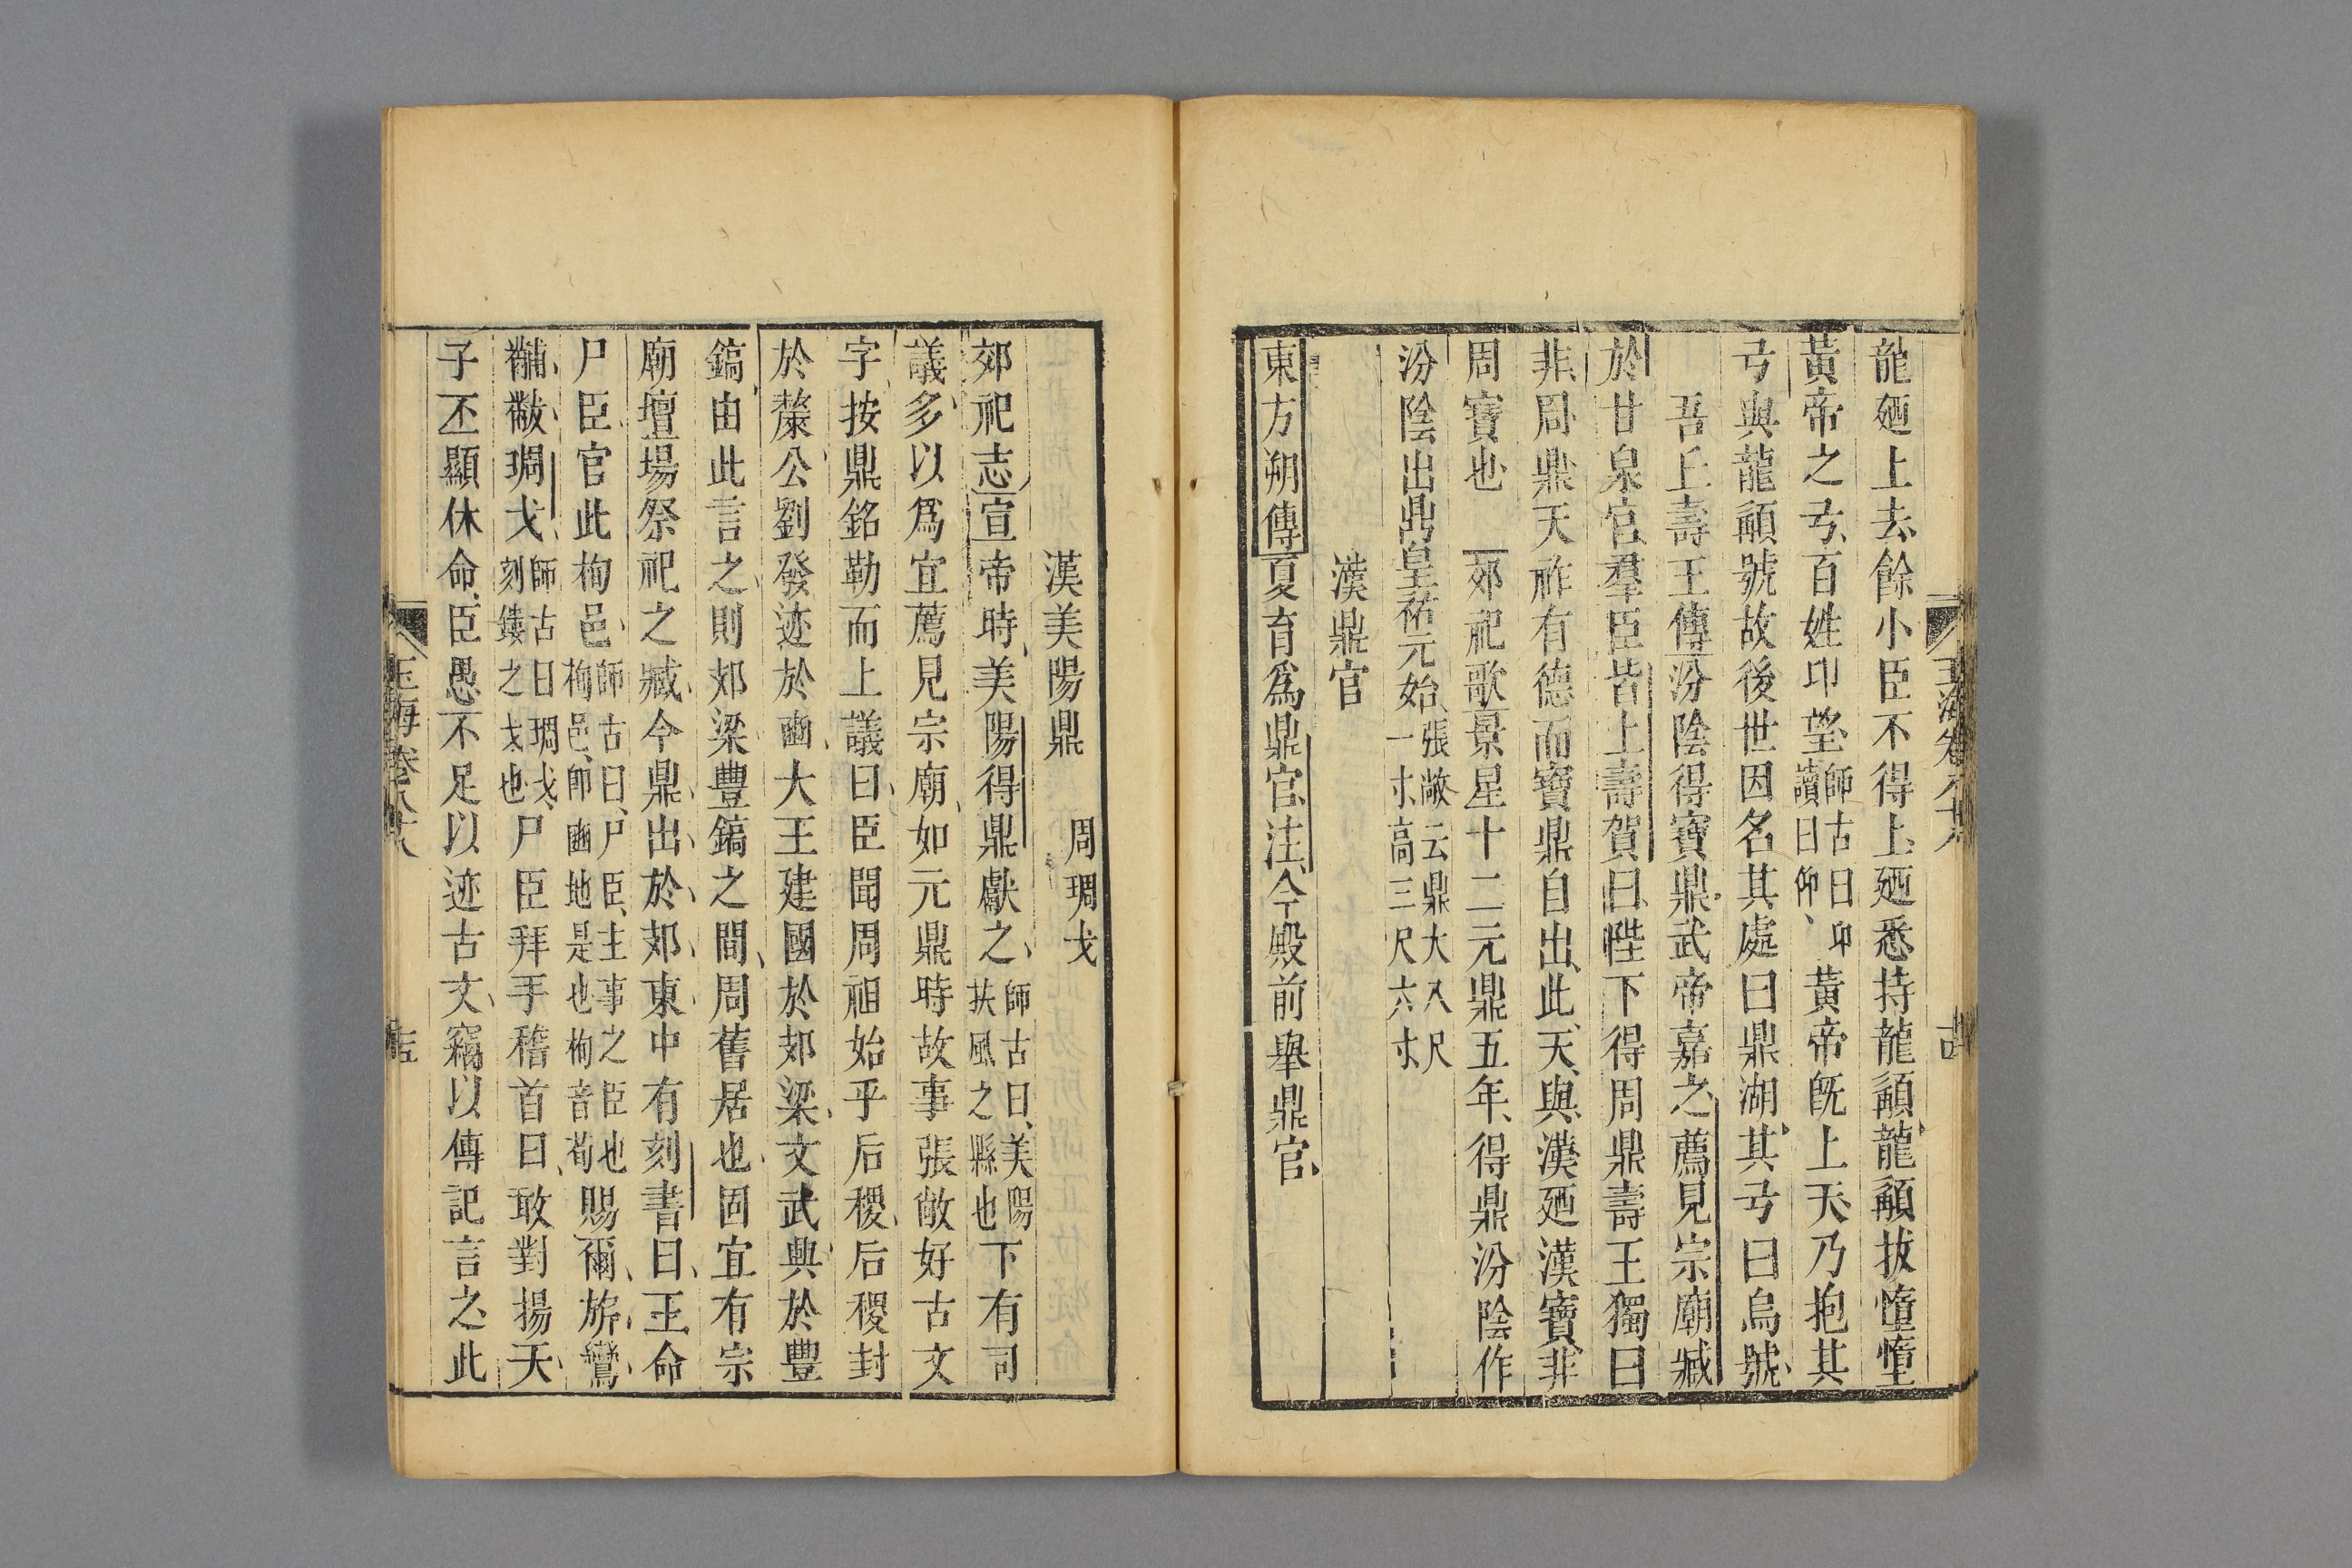 龍廼上去餘小臣不得上廼悉持龍䫇龍䫇拔墮墮
黃帝之弓百姓卬望師古曰卬讀曰仰黃帝既上天乃抱其
弓與龍䫇號故後世因名其處曰鼎湖其弓曰烏號
吾丘壽王傳汾陰得寶鼎武帝嘉之薦見宗廟臧
於甘泉宫羣臣皆上壽賀曰陛下得周鼎壽王獨曰
非周鼎天祚有德而寶鼎自出此天與漢廼漢寶非
周寶也 郊祀歌景星十二元鼎五年得鼎汾陰作
汾陰出鼎皇祐元始張敞云鼎大八尺一寸高三尺六寸
漢鼎官
東方朔傳夏育爲鼎官注今殿前舉鼎官
漢美陽鼎 周琱戈
郊祀志宣帝時美陽得鼎獻之師古曰美陽扶風之縣也下有司
議多以爲宜薦見宗廟如元鼎時故事張敞好古文
字按鼎銘勒而上議曰臣聞周祖始乎后稷后稷封
於斄公劉發迹於豳大王建國於郊梁文武興於豐
鎬由此言之則郊梁豐鎬之間周舊居也固宜有宗
廟壇場祭祀之臧今鼎出於郊東中有刻書曰王命
尸臣官此栒邑師古曰尸臣主事之臣也栒邑師豳地是也栒音荀賜爾旂鸞
黼黻琱戈師古曰琱戈刻鏤之戈也尸臣拜手稽首曰敢對揚天
子丕顯休命臣愚不足以迹古文竊以傳記言之此
玉海卷八十八